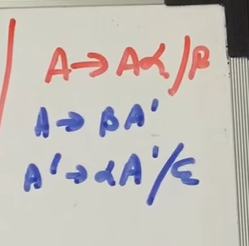 A→Aα/β
A→βA'
A'→αA'/ε